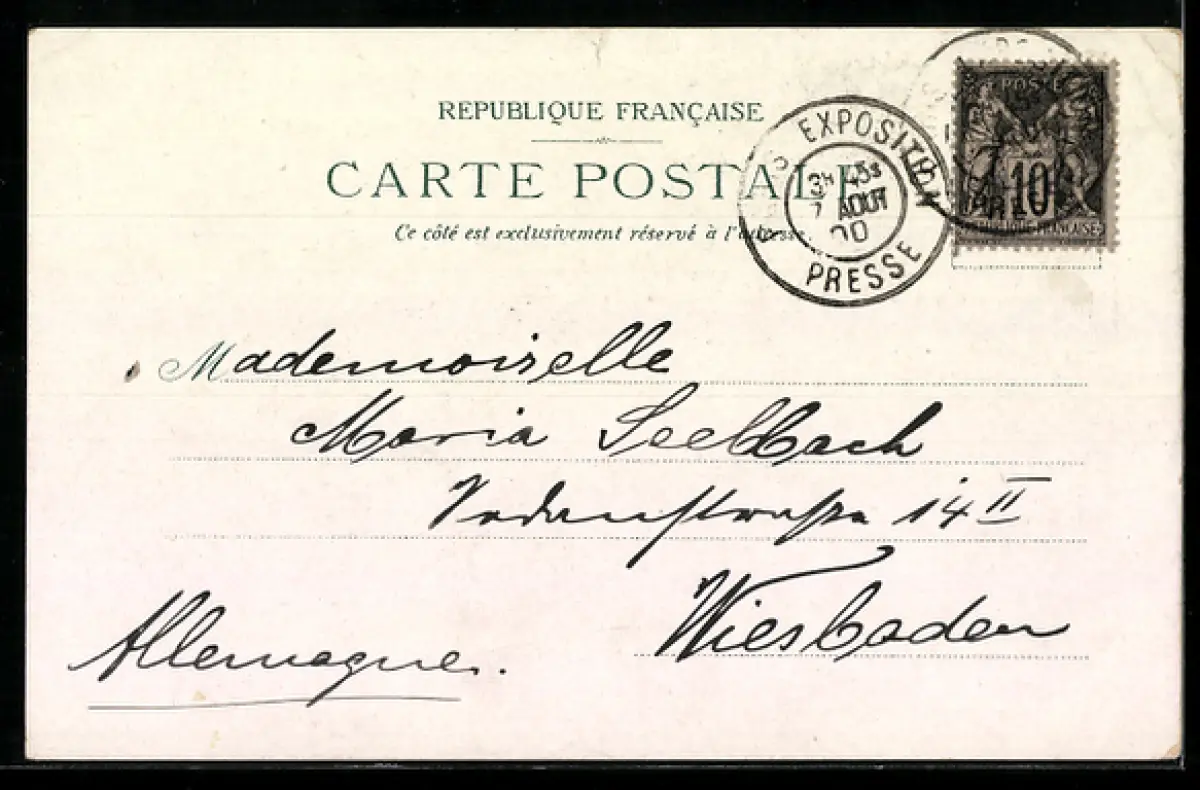 REPUBLIQUE FRANÇAISE
CARTE POSTALE
Ce côté est exclusivement réservé à l'adresse.
EXPOSITION
AOUT
00
PRESSE
POSTE
10
REPUBLIQUE FRANÇAISE
Mademoiselle
Maria Seelbach
14 II
Wiesbaden
Allemagne.